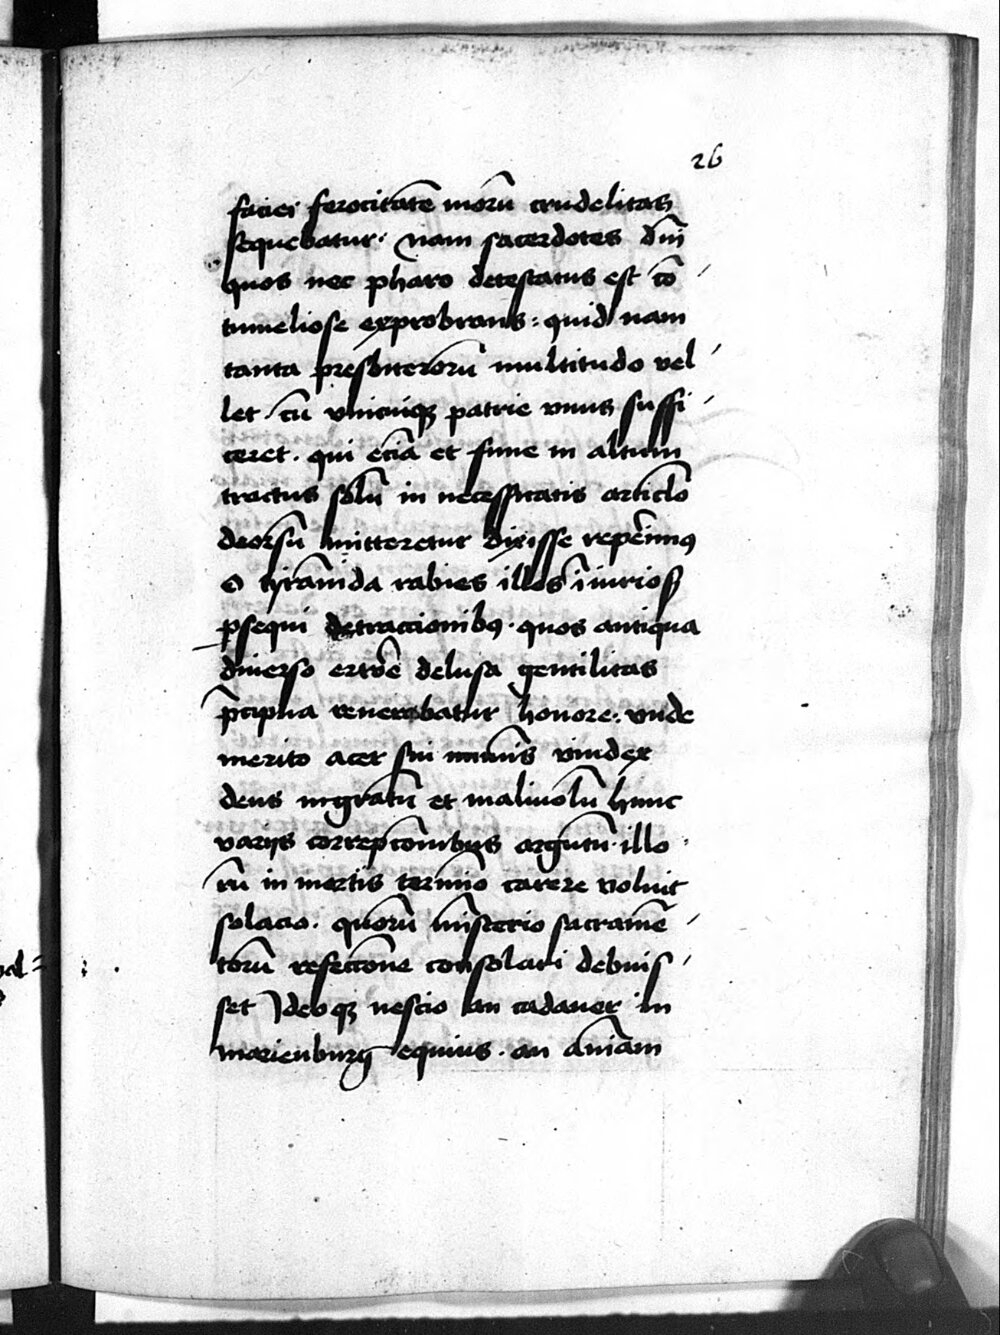 26
faciei ferocitatē morū crudelitas
sequebatur. Nam sacerdotes dn̄i
quos nec pharo detestatus est cō
tumeliose exprobrans: quid nam
tanta presbiterorū multitudo vel
let. cū vnicuiqꝫ patrie vnus suffi
ceret. qui eciā et fune in altum
tractus solū in necessitatis articlo
deorsū mitteretur dixisse repēimꝰ
O tyrānida rabies illos īiurioß
ꝑsequi detraccionibꝰ. quos antiqua
diuerso errōe delusa gentilitas
p̄cipua venerabatur honore. vnde
merito acer sui nuīnis vindex
deus ingratū et maliuolū hunc
varijs correpcōnibus argutū. illo
rū in mortis termīo carere voluit
solacio. quorū mīsterio sacramē
torū refeccōne consolari debuis
set Ideoqꝫ nescio an cadauer in
marienburg equius. an aīam